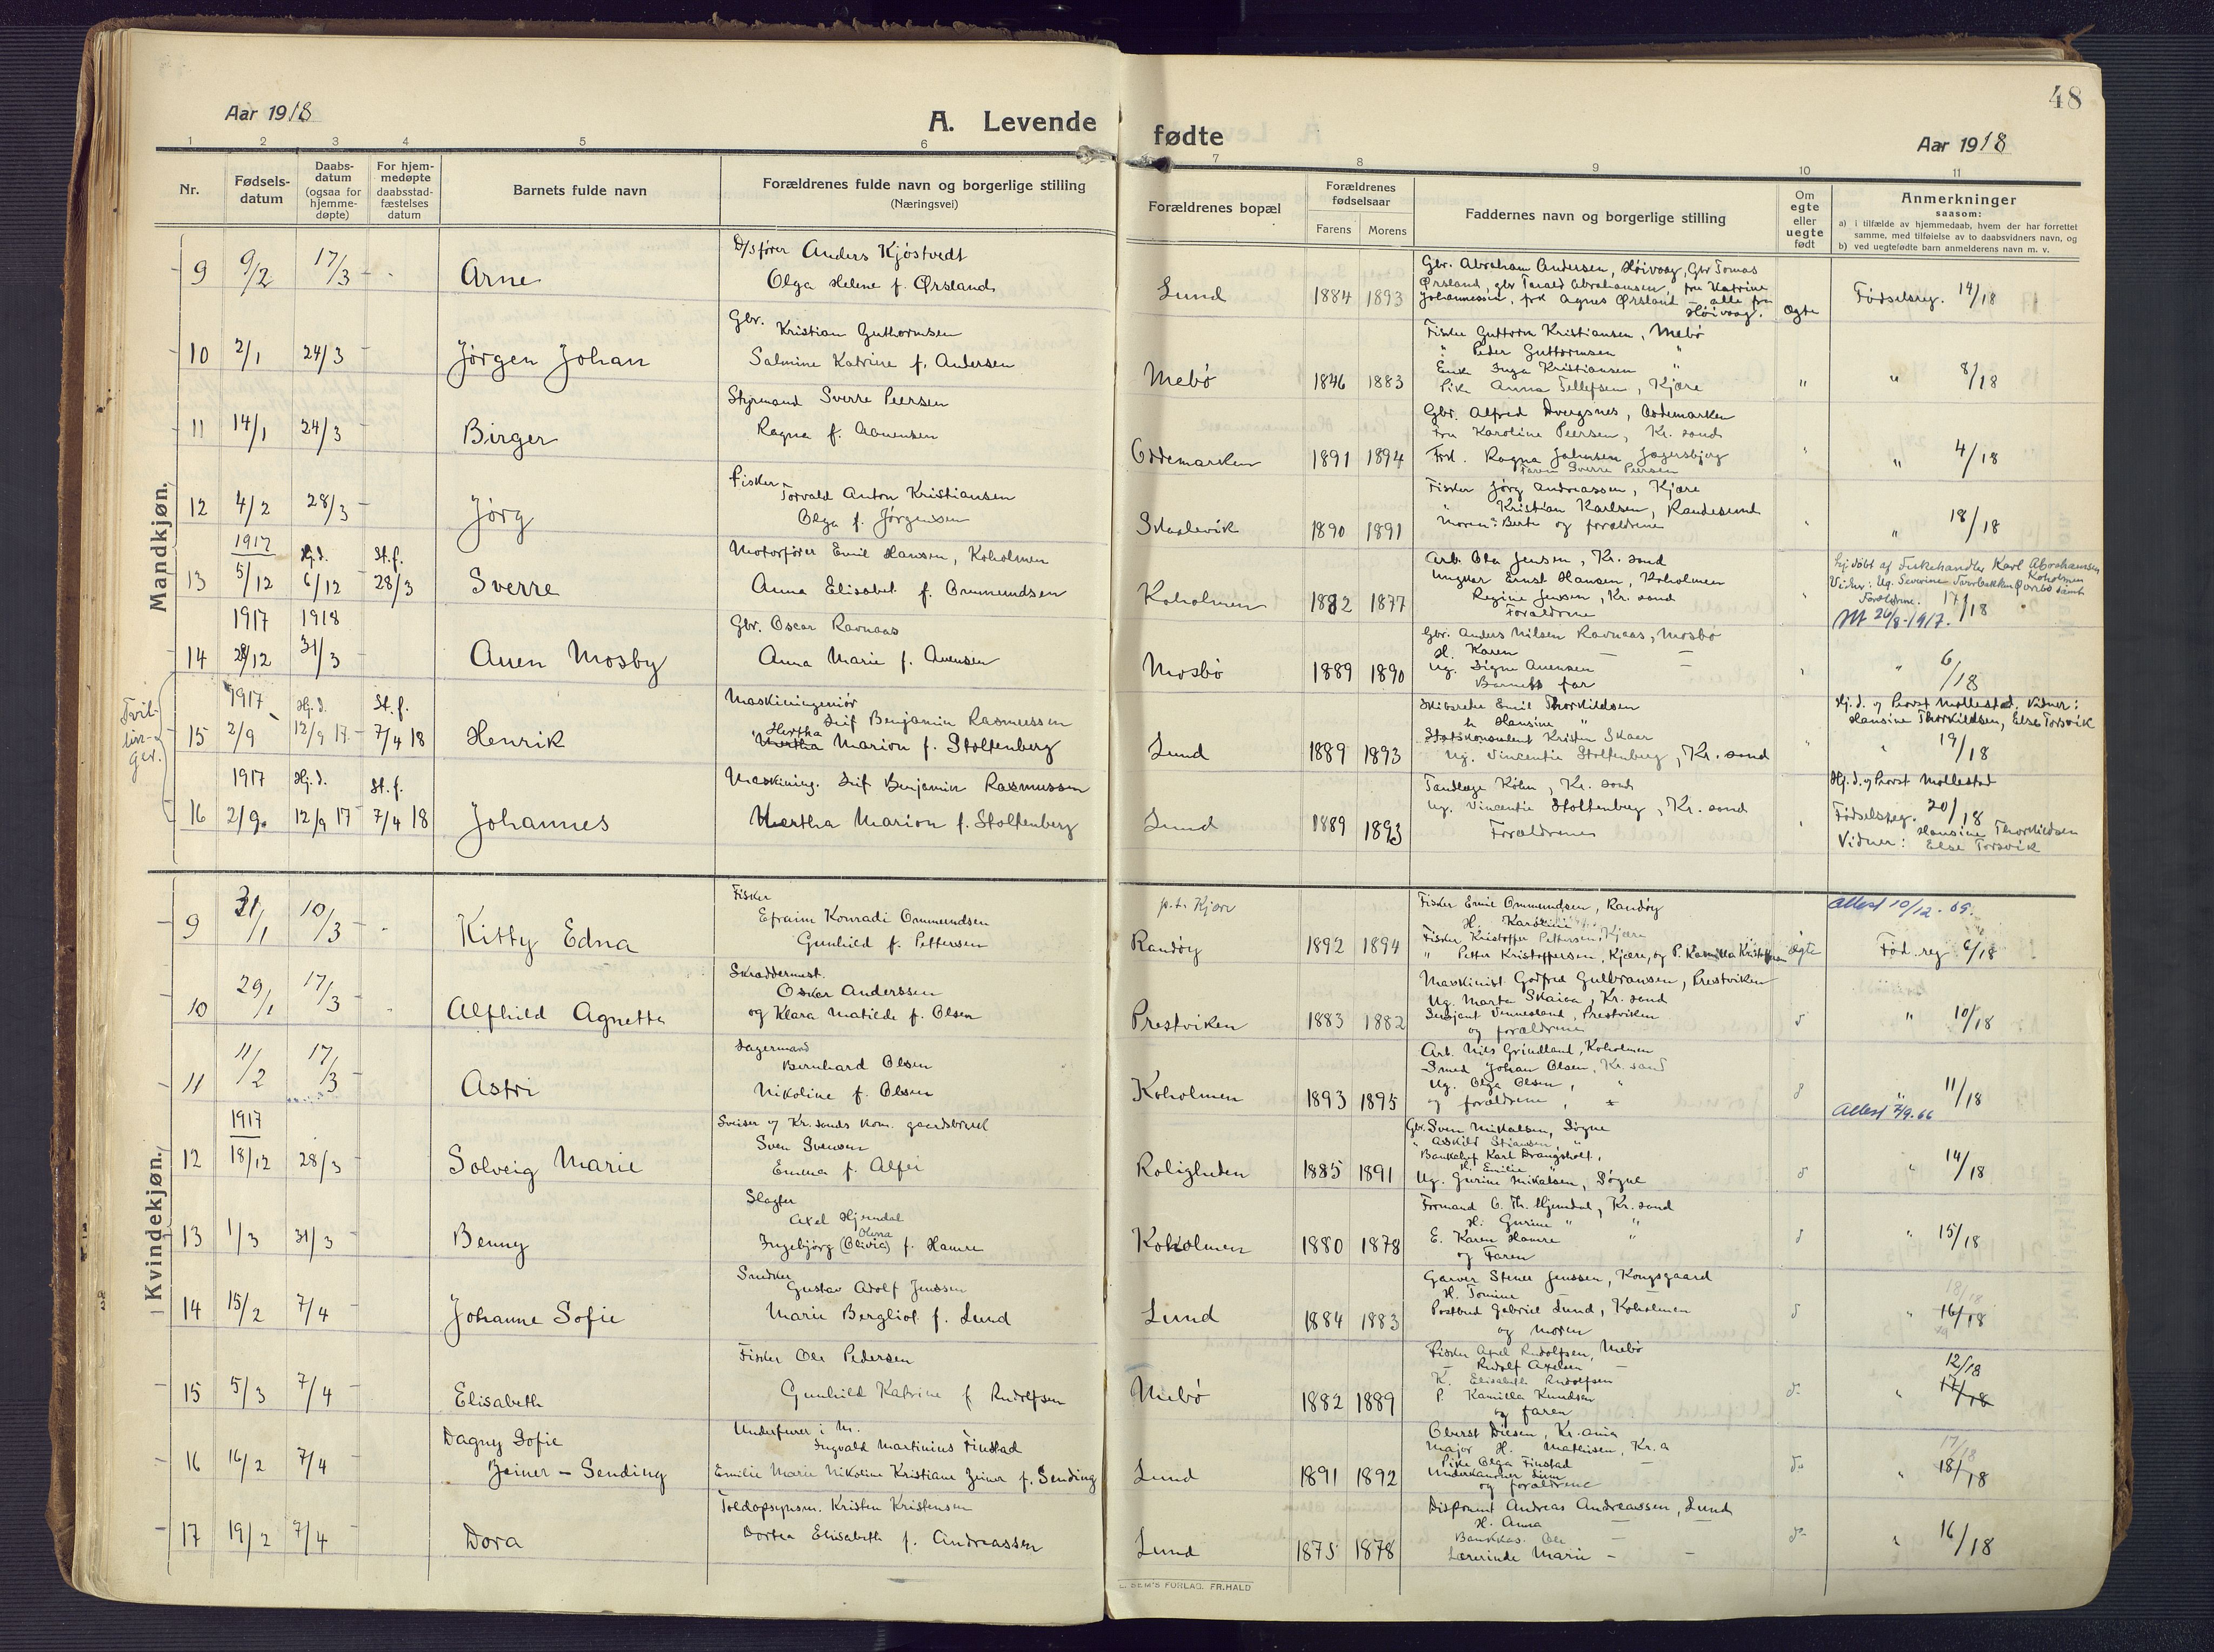 48
Aar 1918
A. Levende fødte
Aar 1918
1 2 3 4 5 6 7 8 9 10 11
Nr.
Fødsels-
datum
Daabs-
datum
(ogsaa for
hjemme-
døpte)
For hjem-
medøpte
daabsstad-
fæstelses
datum
Barnets fulde navn
Forældrenes fulde navn og borgerlige stilling
(Næringsvei)
Forældrenes bopæl
Forældrenes
fødselsaar
Farens Morens
Faddernes navn og borgerlige stilling
Om
egte
eller
uegte
født
Anmerkninger
saasom:
a) i tilfælde av hjemmedaab, hvem der har forrettet
samme, med tilføielse av to daabsvidners navn, og
b) ved uegtefødte barn anmelderens navn m. v.
Mandkjøn.
9 9/2 17/3 - Arne
D/Sfører Anders Kjöstvedt
Olga Helene f. Ørsland
Lund 1884 1893
Gbr. Abraham Andersen, Höivaag, Gbr Tomas
Ørsland, gbr Tarald Abrahamsen, fru Katrine
Johannessen, frk Agnes Ørsland - alle fra
Höivaag.
Ægte
Fødselsreg. 14/18
10 2/1 24/3 - Jörgen Johan
Gbr. Kristian Guthormsen
Salmine Katrine f. Andersen
Mebö 1846 1883
Fisker Guttorm Kristiansen, Mebö
" Peder Guttormsen "
Enke Inga Kristiansen "
Pike Anna Tellefsen, Kjære
" " 8/18
11 14/1 24/3 - Birger
Styrmand Sverre Peersen
Ragna f. Aanensen
Oddemarken 1891 1894
Gbr. Alfred Dvergsnes, Oddemarken
Fru Karoline Peersen, Kr. sand
Frk. Ragna Jahnsen Jegersbjerg
Faren Sverre Peersen
" " 4/18
12 4/2 28/3 - Jörg
Fisker Torvald Anton Kristiansen
Olga f. Jörgensen
Skaalevik 1890 1891
Fisker Jörg Andreassen, Kjære
" Kristian Karlsen, Randesund
" Berte og forældrene
" " 18/18
1917 Hj.d. St.f.
13 5/12 6/12 28/3 Sverre
Motorförer Emil Hansen, Koholmen
Anna Elisabet f. Ommundsen
Koholmen 1882 1877
Arb. Ola Jensen, Kr. sand
Ungkar Ernst Hansen, Koholmen
Regine Jensen, Kr. sand
Forældrene
Hj.döbt af Fiskehandler Karl Abrahamsen
Koholmen
Vidner: Ug. Severine samt
Forældrene. 17/18
26/8-1917.
1917 1918
14 28/12 31/3 Auen Mosby
Gbr. Oscar Ravnaas
Anna Marie f. Auensen
Mosbö 1889 1890
Gbr. Anders Nilsen Ravnaas, Mosbö
H. Karen — —
Ug. Signe Auensen —
Barnets far
" " 6/18
Tvil-
lin-
ger.
1917 Hj.d. St.f.
15 2/9 12/9 17 7/4 18 Henrik
Maskiningeniör
Leif Benjamin Rasmussen
Hertha Marion f. Stoltenberg
Lund 1889 1893
Skibsreder Emil Thorkildsen
h Hansine "
Statskonsulent Kristen Skaer
Ug. Vincentie Stoltenberg, Kr. sand
Hj.d. af Provst Mollestad, Vidner:
Hansine Thorkildsen, Else Torsvik
" 19/18
1917 Hj.d. St.f.
16 2/9 12/9 17 7/4 18 Johannes
Maskining. Leif Benjamin Rasmussen
Hertha Marion f. Stoltenberg
Lund 1889 1893
Tandlæge Köhn, Kr. sand
Ug. Vincentie Stoltenberg, Kr. sand
Forældrene
Hj.d. af Provst Mollestad
Fødselsreg. 20/18
Vidner: Hansine Thorkildsen
Else Torsvik
Kvindekjøn.
9 31/1 10/3 - Kitty Edna
Fisker
Efraim Konradi Ommundsen
Gunhild f. Pettersen
p.t. Kjære
Randöy 1892 1894
Fisker Emil Ommundsen, Randöy
H. Karoline
Fisker Kristoffer Pettersen, Kjære
" Petter Kristoffersen, Kjære, og P. Kamilla Kristoffersen
Ægte
Attest 10/12. 69.
Fød. reg 6/18
10 29/1 17/3 - Alfhild Agnette
Skræddermest.
Oskar Anderssen
og Klara Matilde f. Olsen
Prestviken 1883 1882
Maskinist Godfred Gulbransen, Prestviken
Ug. Marta Skaiaa, Kr. sand
Sersjant Vennesland, Prestviken
og forældrene
" 10/18
11 11/2 17/3 - Astri
Lagermand
Bernhard Olsen
Nikoline f. Olsen
Koholmen 1893 1895
Arb. Nils Grindland, Koholmen
Smed Johan Olsen, Kr. sand
Ug. Olga Olsen, "
og forældrene, "
" 11/18
1917
12 18/12 28/3 - Solveig Marie
Sveiser og Kr.sands kom. gaardsbruk
Sven Svensen
Emma f. Alfei
Roligheden 1885 1891
Gbr. Sven Mikalsen, Søgne
" Askild Stiansen, "
Bankchef Karl Drangsholt,
H. Emilie "
Ug. Gurine Mikalsen, Søgne
Attest 7/9.66
" 14/18
13 1/3 31/3 - Benny
Slagter
Axel Hjemdal
Ingebjörg (Olivia) f. Hamre
Koholmen 1880 1878
Formand C. Th. Hjemdal, Kr. sand
H. Gurine " "
E. Karen Hamre "
og Faren
" 15/18
14 15/2 7/4 - Johanne Sofie
Snedker
Gustav Adolf Jenssen
Marie Bergliot f. Lund
Lund 1884 1883
Garver Stener Jenssen, Kongsgaard
H. Tomine —
Postbud Gabriel Lund, Koholmen
og moren
18/18
" 16/18
15 5/3 7/4 - Elisabeth
Fisker Ole Pedersen
Gunhild Katrine f Rudolfsen
Mebö 1882 1889
Fisker Axel Rudolfsen, Mebö
— Rudolf Axelsen —
K. Elisabeth Rudolfsen
P. Kamilla Knudsen
og faren
12/18
" 17/18
16 16/2 7/4 - Dagny Sofie
Zeiner - Sending
Underfurer i M.
Ingvald Martinius Finstad
Emilie Marie Nikoline Kristiane Zeiner f. Sending
Lund 1891 1892
Oberst Diesen, Kr.ania
Major H. Mathisen, Kr.a
Pike Olga Finstad —
og forældrene
17/18
" 18/18
17 19/2 7/4 - Dora
Toldopsynsm. Kristen Kristensen
Dortea Elisabeth f. Andreassen
Lund 1875 1878
Disponent Andreas Andreassen, Lund
H. Anna —
Bankkas. Ole —
Lærerinde Marie - —
" 16/18
SEM'S FORLAG. FR. HALD